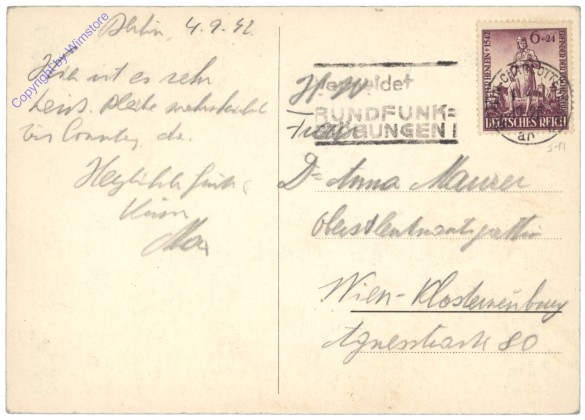 Berlin, 4.9.42
Hier ist es sehr
heiss. Bleibe wahrscheinlich
bis Sonntag da.
Herzlichste Grüsse
Max
Vermeidet
RUNDFUNK=
STÖRUNGEN!
6+24
1542
1942
PETER HENLEIN
DEUTSCHES REICH
Frau
Dr Anna Maurer
Oberstleutnantsgattin
Wien-Klosterneuburg
Agnesstrasse 80
Copyright by Wimstore